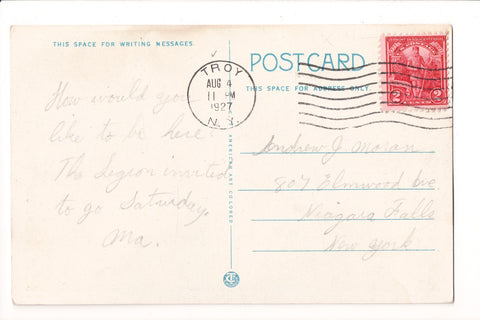 THIS SPACE FOR WRITING MESSAGES
POSTCARD
THIS SPACE FOR ADDRESS ONLY.
TROY
AUG 4
11 PM
1927
N.Y.
2 2
AMERICAN ART COLORED
How would you
like to be here.
The Legion invited
to go Saturday.
Ma.
Andrew J Moran
807 Elmwood Ave
Niagara Falls
New York